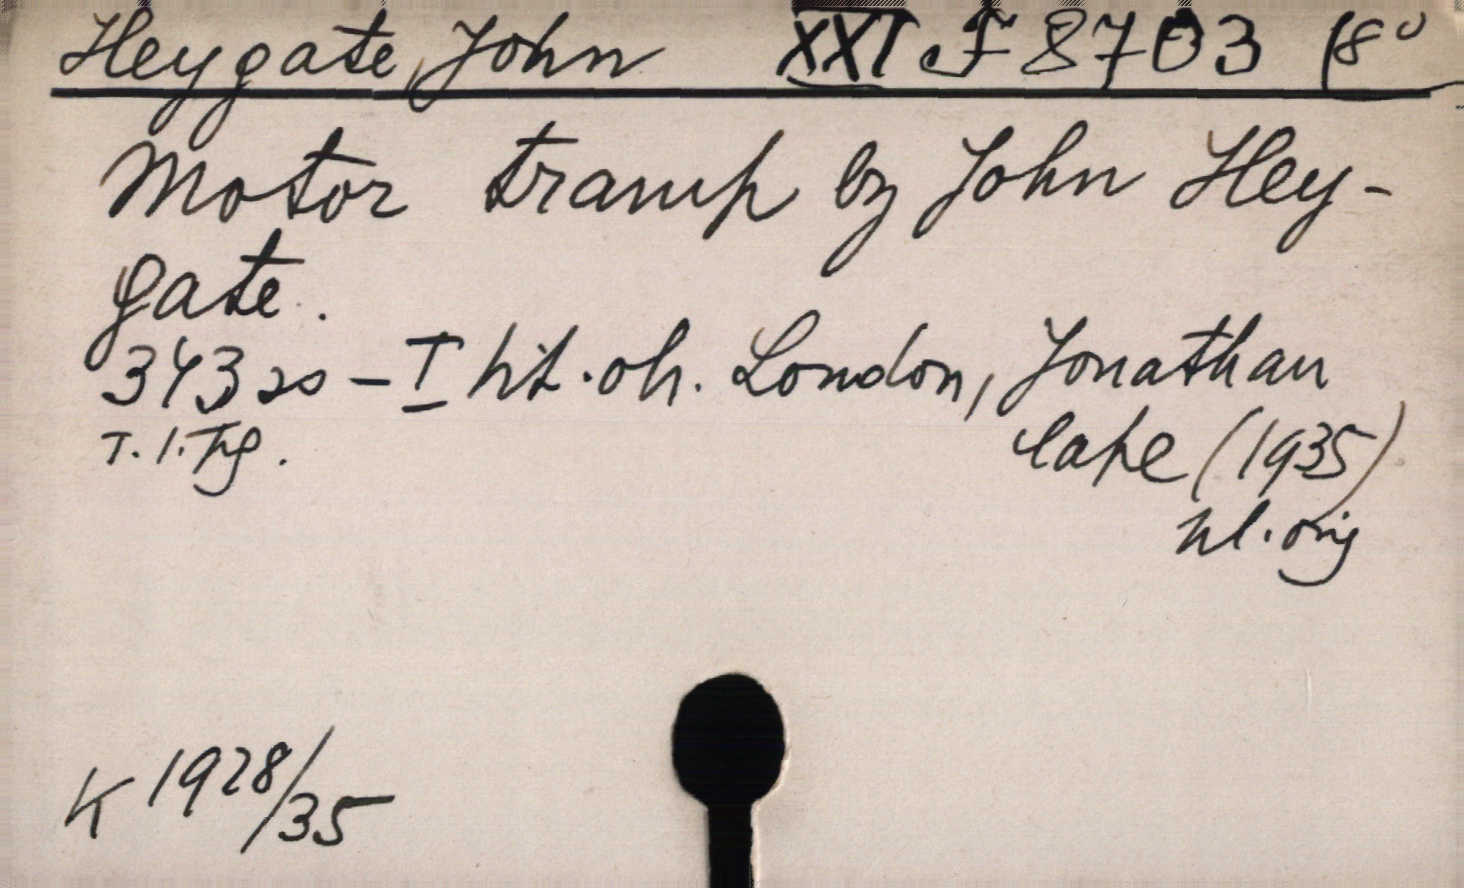 Heygate, John XXI F 8703 (8°
Motor tramp by John Hey-
gate.
343 2s – I tit. ob. London, Jonathan
T.1.Tfg. Cape (1935)
pl. orig
K 1928/35